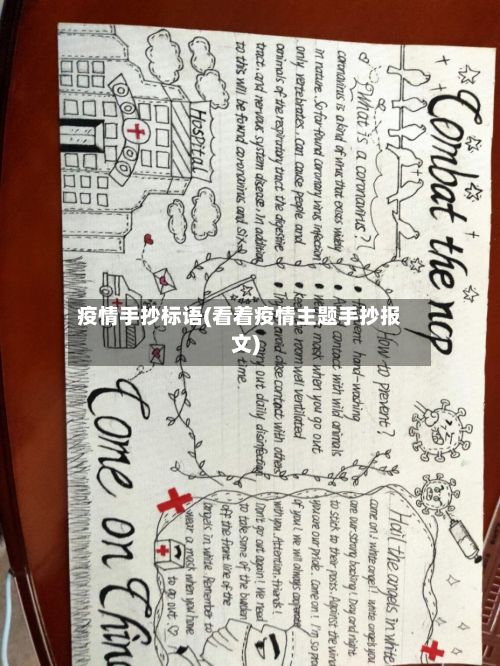 Combat the ncp
① What is a coronavirus?
coronavirus is a kind of virus that exists widely
in nature. So far found coronary virus infection
only vertebrates, Can cause people and
animals of the respiratory tract the digestive
tract, and nervous system disease. In addition
to this will be found coronavirus and six
Hospital
How to prevent?
hand-washing
contact with wild animals
mask when you go out
the room well ventilated
avoid close contact with others
out daily disinfection
time.
疫情手抄标语(看着疫情主题手抄报
文)
Hail the angels in white
come on! white angel! white angels you
are our strong backing! Day and night
to stick to their posts. Against the wind
you are our pride. Come on! I'm so
of you! We will always
with you. Attention, friends!
Don't go out again! We need
to take some of the burden
off the front line of the
angels in white. Remember to
wear a mask when you have
to go out
Come on